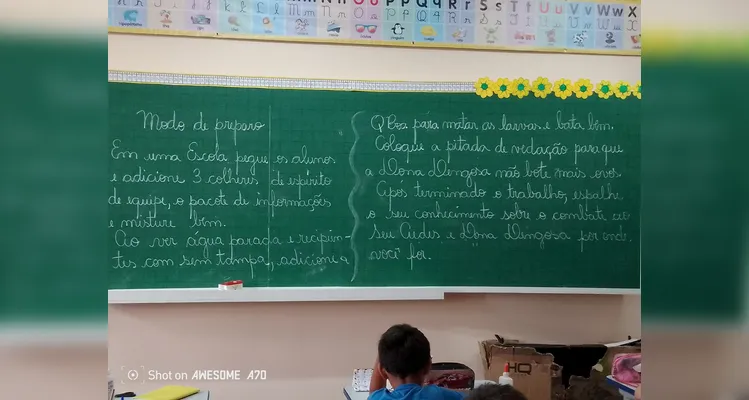 Modo de preparo
Em uma Escola pegue os alunos
e adicione 3 colheres de espírito
de equipe, o pacote de informações
e misture bem.
Ao ver água parada e recipien-
tes com sem tampa, adicione a
QBoa para matar as larvas e bata bem.
Coloque a pitada de vedação para que
a Dona Dengosa não bote mais ovos.
Após terminado o trabalho, espalhe
o seu conhecimento sobre o combate ao
Seu Aedes e Dona Dengosa por onde
você for.
HQ
Shot on AWESOME A70